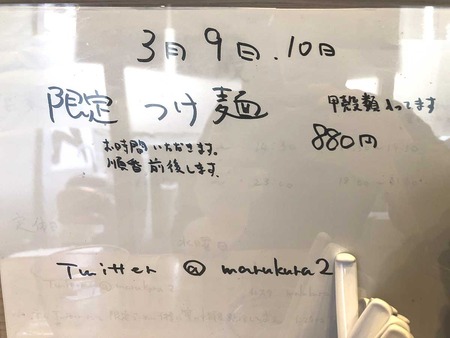 3月9日.10日
限定 つけ麺 甲殻類入ってます
880円
お時間いただきます。
順番前後します.
Twitter @ marukura2